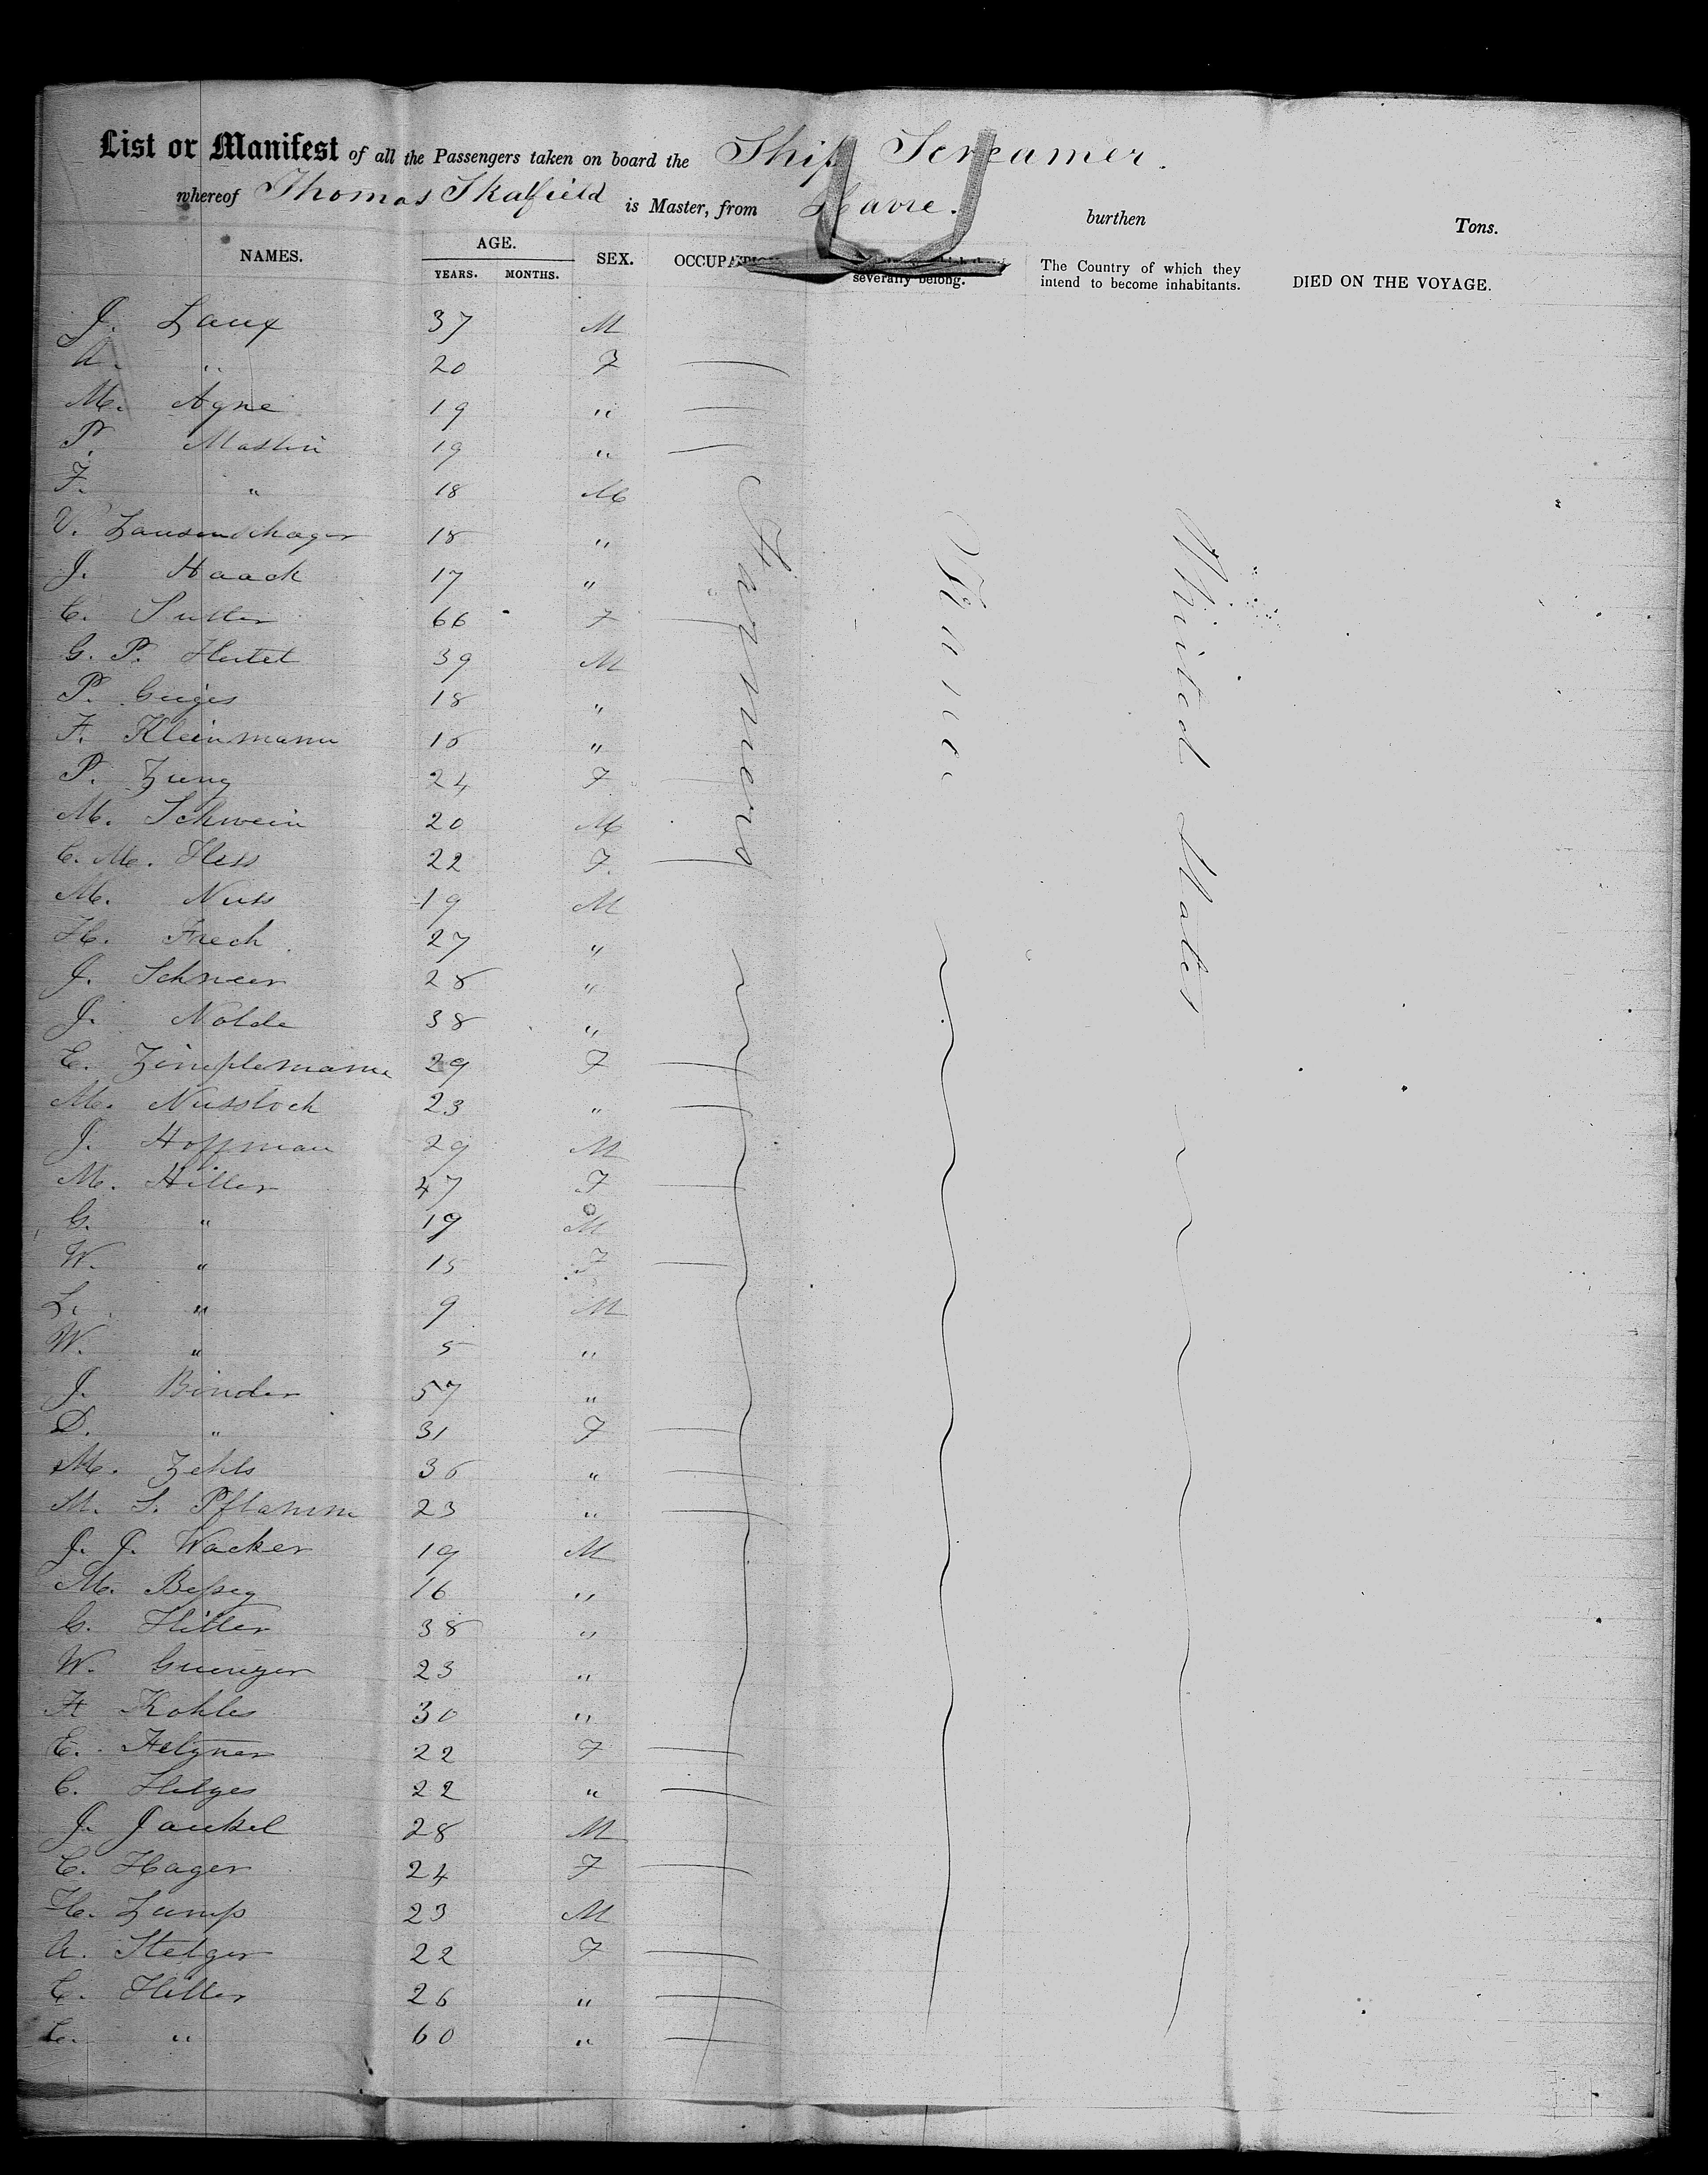 List or Manifest of all the Passengers taken on board the Ship Screamer.
whereof Thomas Skalfield is Master, from Havre. burthen Tons.
NAMES. AGE. YEARS. MONTHS. SEX. severally belong. The Country of which they intend to become inhabitants. DIED ON THE VOYAGE.
J. Laux 37 M
A. " 20 F
M. Agne 19 "
P. 19 "
F. " 18 M
V. 18 "
J. Haack 17 "
C. Sutter 66 F
G. P. Hertel 39 M
P. 18 "
F. Kleinmann 16 "
P. Zung 24 F
M. Schwein 20 M
C. M. Hess 22 F.
M. Nuss 19 M
H. Frech 27 "
J. Schneer 28 "
J. Nolde 38 "
E. Zimplemann 29 F
M. Nussloch 23 "
J. Hoffman 29 M
M. Hiller 47 F
G. " 19 M
W. " 15 F
L. " 9 M
W. " 5 "
J. Binder 57 "
D. " 31 F
M. Zehls 36 "
M. S. Pflamm 23 "
J. J. Wacker 19 M
M. Bessey 16 "
G. Hiller 38 "
W. 23 "
F Kohles 30 "
E. 22 F
C. Helges 22 "
J. Jaukel 28 M
C. Hager 24 F
H. Zump 23 M
A. Stelger 22 F
C. Hiller 26 "
C. " 60 "
Farmers
France
United States